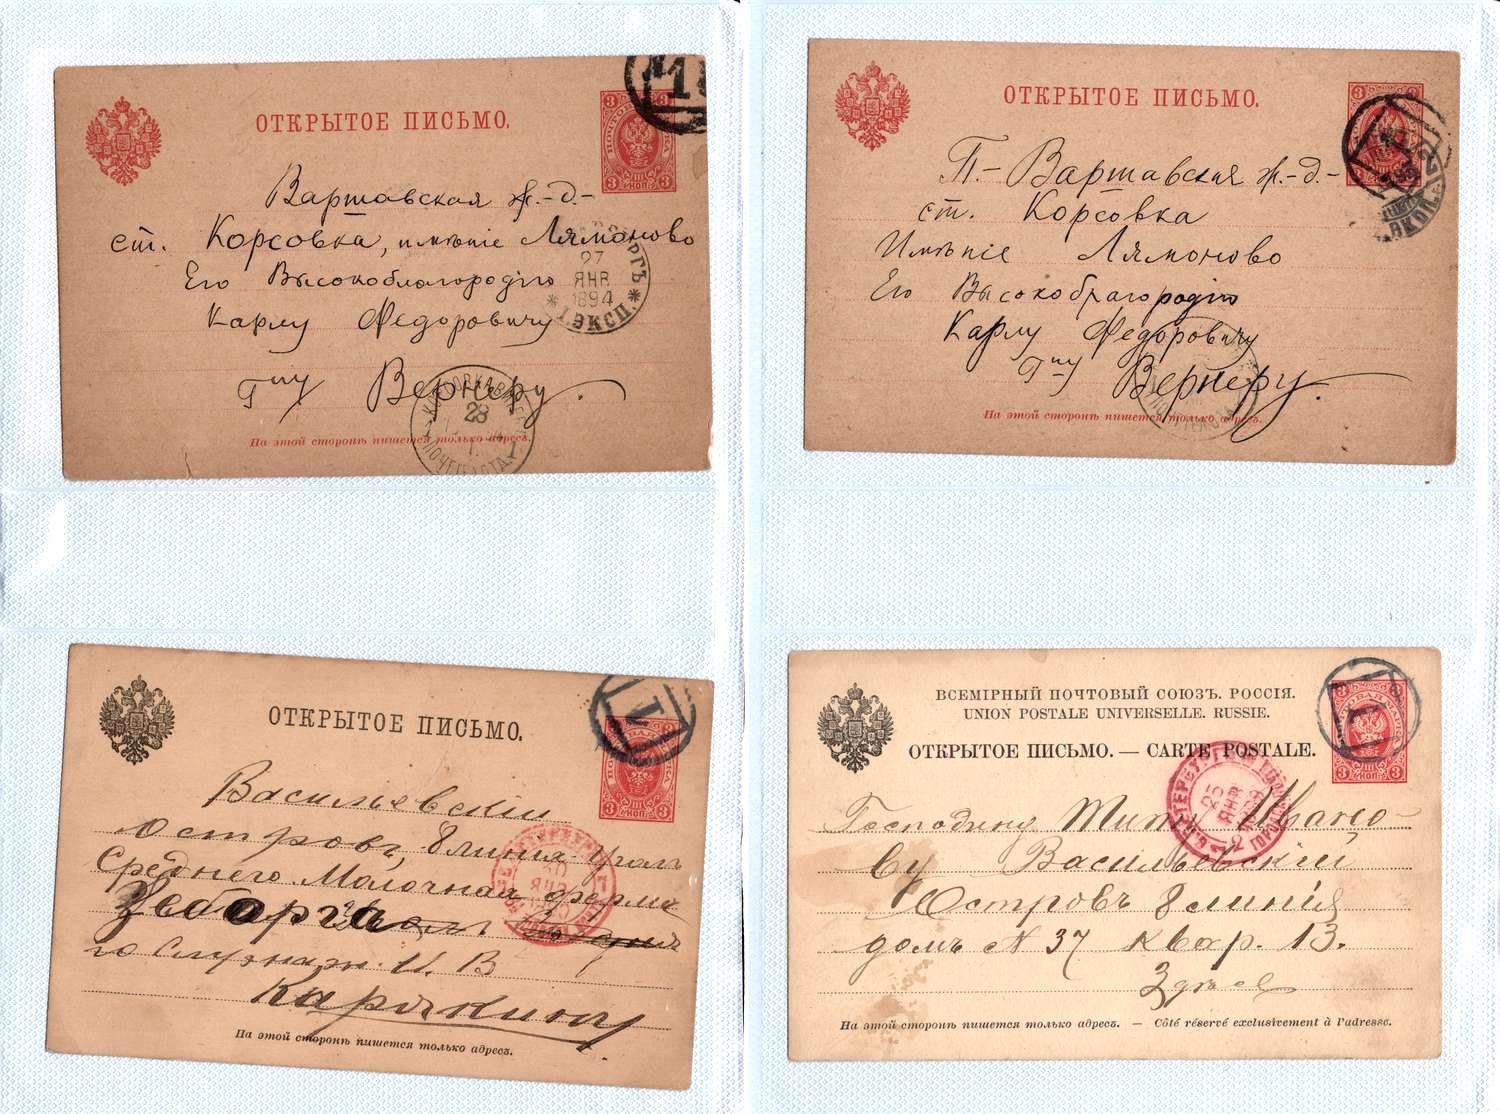 ОТКРЫТОЕ ПИСЬМО.
3 3
3 КОП. 3
Варшавская ж.-д.-
ст. Корсовка, имѣніе Лямоново
Его Высокоблагородію
Карлу Федоровичу
Гну Вернеру.
27
ЯНВ
1894
1.ЭКСП.
28
На этой сторонѣ пишется только адресъ.
ОТКРЫТОЕ ПИСЬМО.
П.- Варшавская ж.-д.-
ст. Корсовка
Имѣніе Лямоново
Его Высокоблагородію
Карлу Федоровичу
Гну Вернеру.
На этой сторонѣ пишется только адресъ.
ОТКРЫТОЕ ПИСЬМО.
3 КОП. 3
Васильевскій
Островъ, 8 линія уголъ
Среднего Молочная ферма
И. В
Карякину
На этой сторонѣ пишется только адресъ.
ВСЕМІРНЫЙ ПОЧТОВЫЙ СОЮЗЪ. РОССІЯ.
UNION POSTALE UNIVERSELLE. RUSSIE.
ОТКРЫТОЕ ПИСЬМО. — CARTE POSTALE.
3 КОП. 3
25
ЯНВ
Господину Тит Ивано-
ву Васильевскій
Островъ 8 линія
домъ N 37 квар. 13.
Здѣсе
На этой сторонѣ пишется только адресъ. — Côté réservé exclusivement à l'adresse.